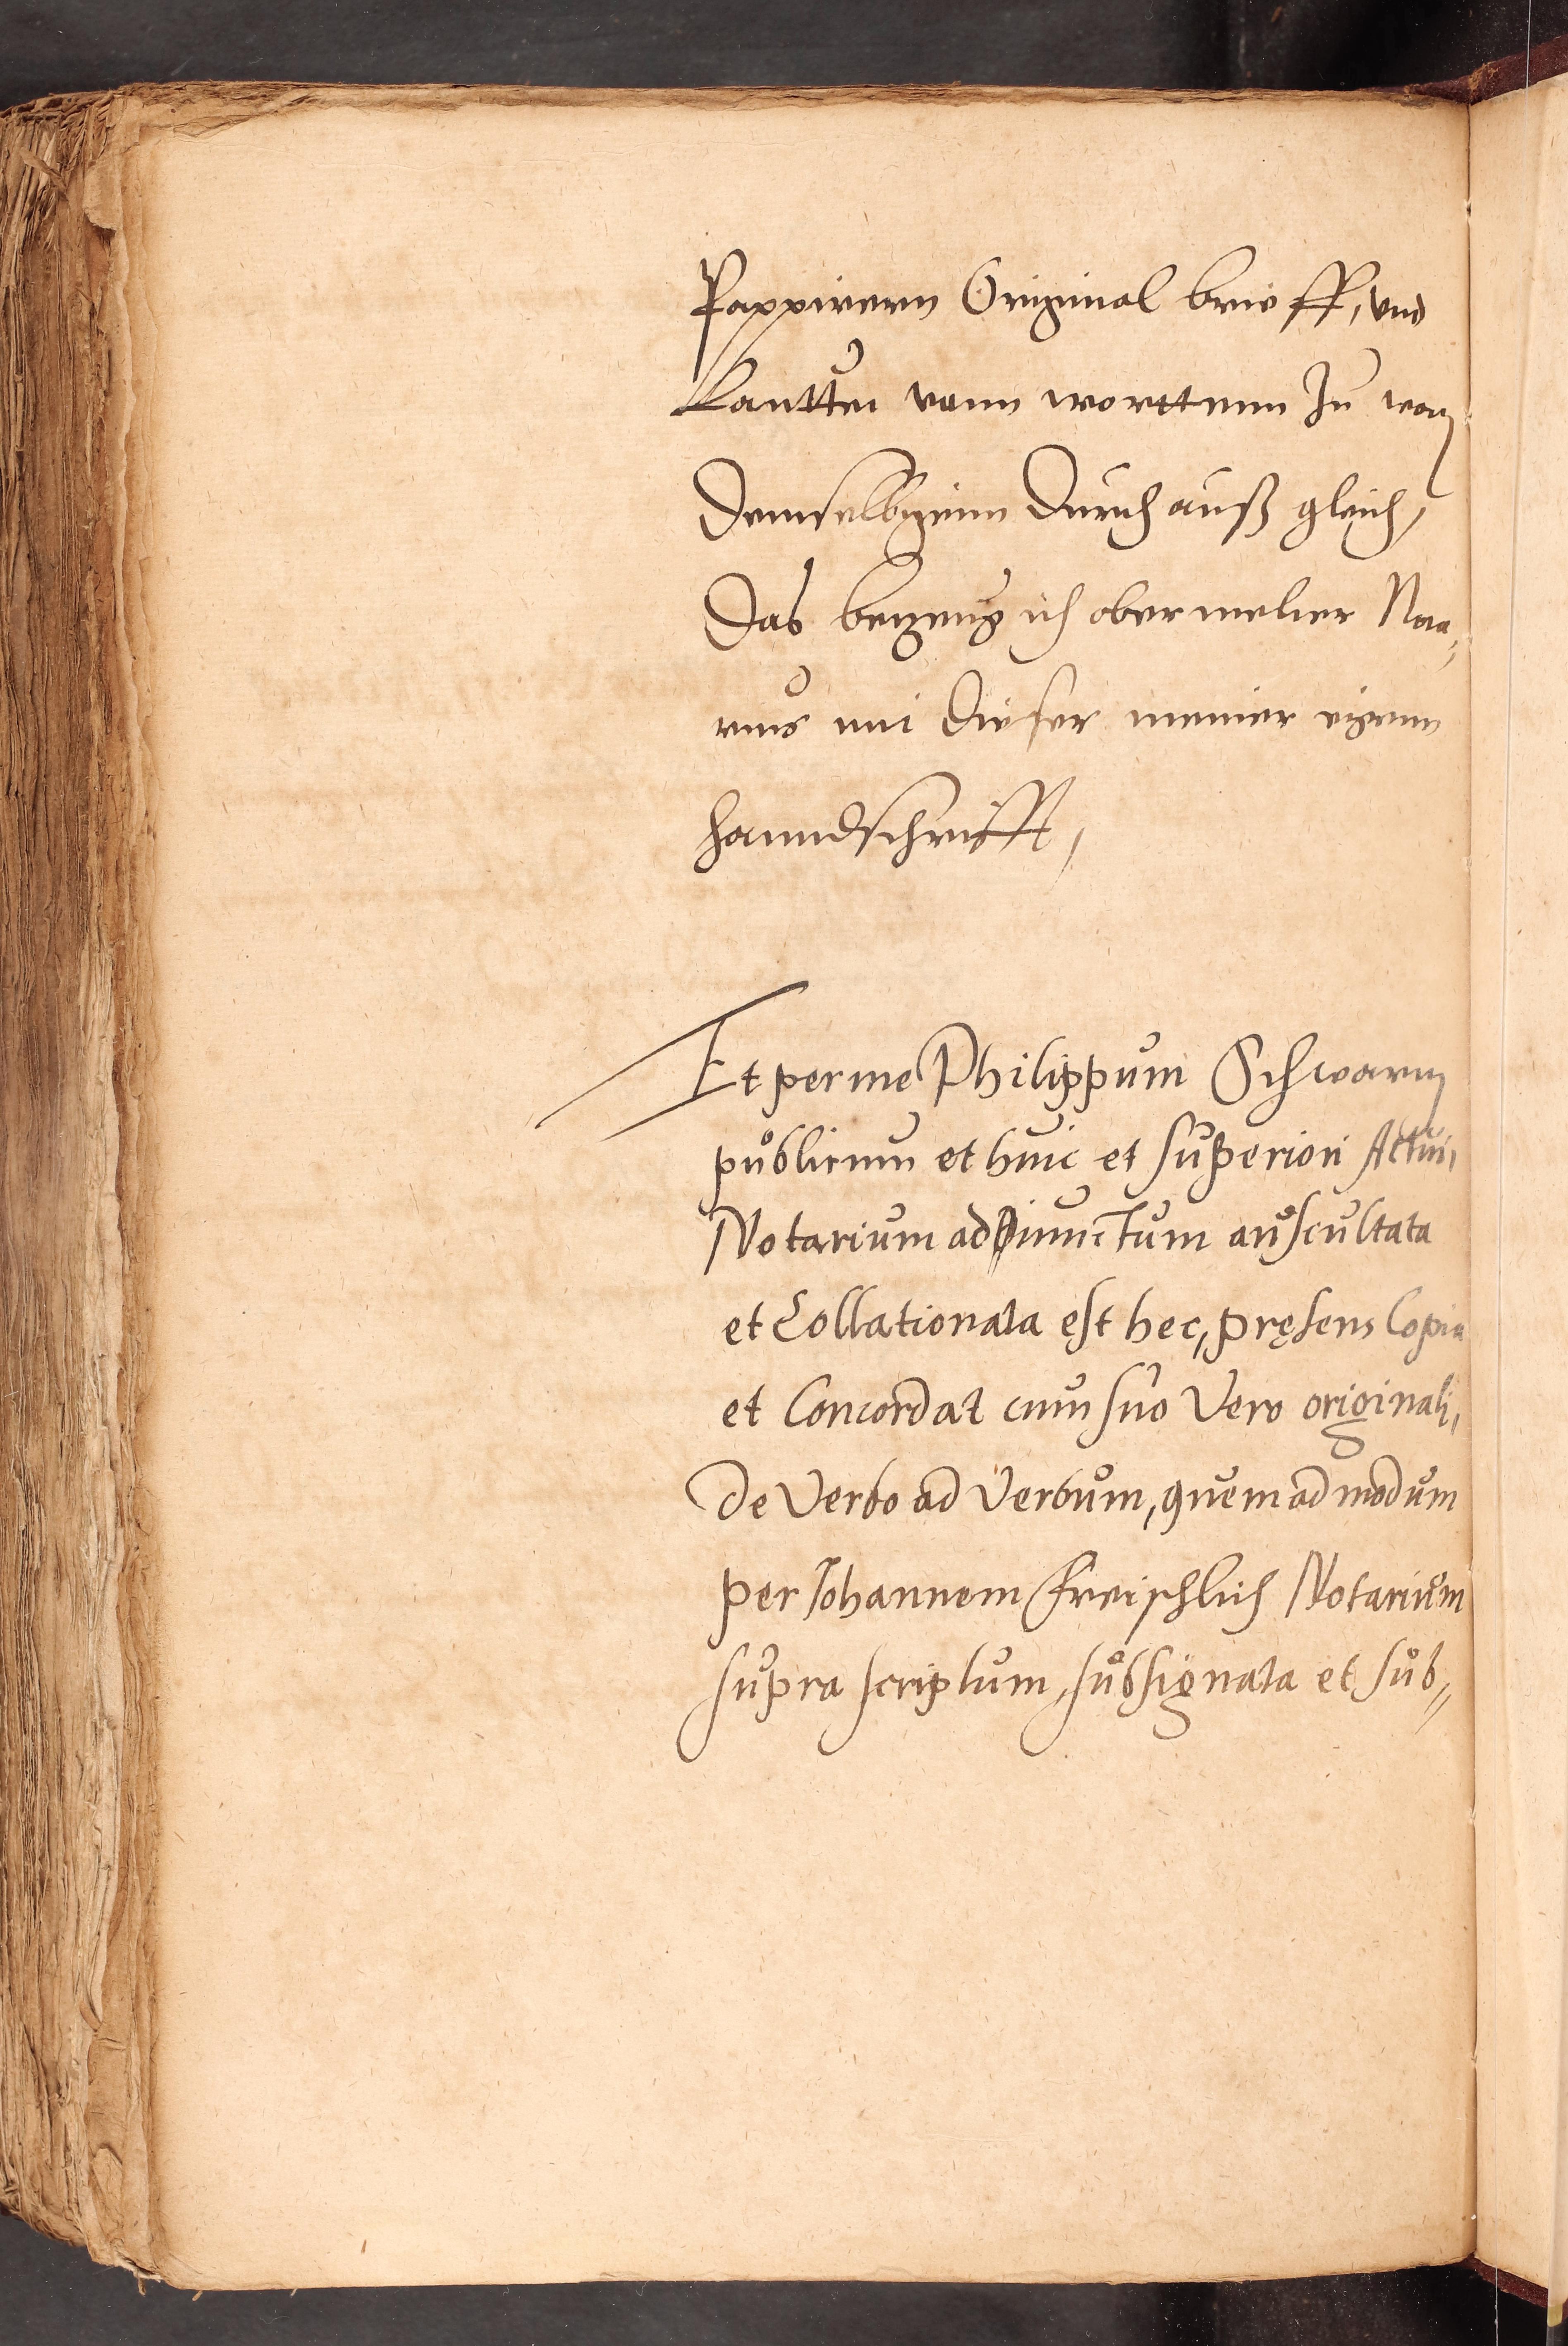 Pappirenn Original brieff, vnd
Lauttei vonn worttenn Zu wort
Demselbigenn Durch auß gleich,
Das bezeug ich obermelter Nota,,
rius mit dieser meiner eigenn
hanndschrifft,
Et per me Philippum Schwartz
publicum et huic et superiori Actui,
Notarium adiunctum auscultata
et Collationata est hec, pręsens Copia
et Concordat cum suo Vero originali,
De Verbo ad Verbum, quemadmodum
per Johannem Freischlich Notarium
supra scriptum, subsignata et sub,,